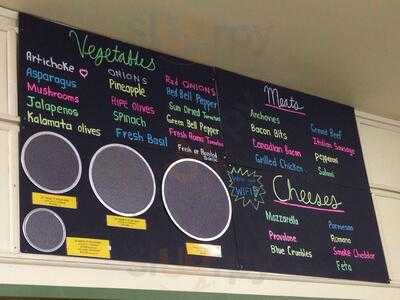 Vegetables
Artichoke
Asparagus
Mushrooms
Jalapenos
Kalamata olives
ONIONS
Pineapple
Ripe OLIVES
Spinach
Fresh Basil
Red ONIONS
Red Bell Pepper
Sun Dried Tomatoes
Green Bell Pepper
Fresh Roma Tomatoes
Fresh or Roasted
Meats
Anchovies
Bacon Bits
Canadian Bacon
Grilled Chicken
Ground Beef
Italian Sausage
Pepperoni
Salami
WIFI
Cheeses
Mozzarella
Provolone
Blue Crumbles
Parmesan
Romano
Smoke Cheddar
Feta